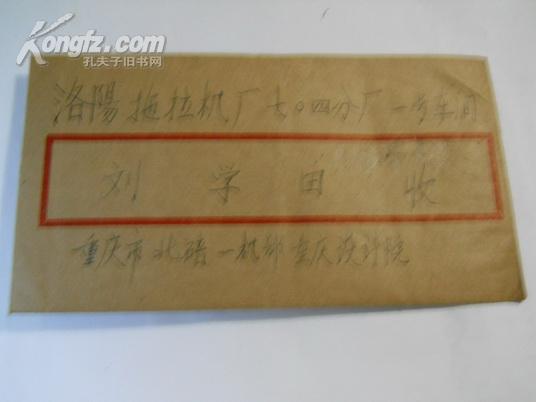 Kongfz.com
孔夫子旧书网
洛陽拖拉机厂七〇四分厂一号车间
刘学田收
重庆市北碚一机部重庆设计院